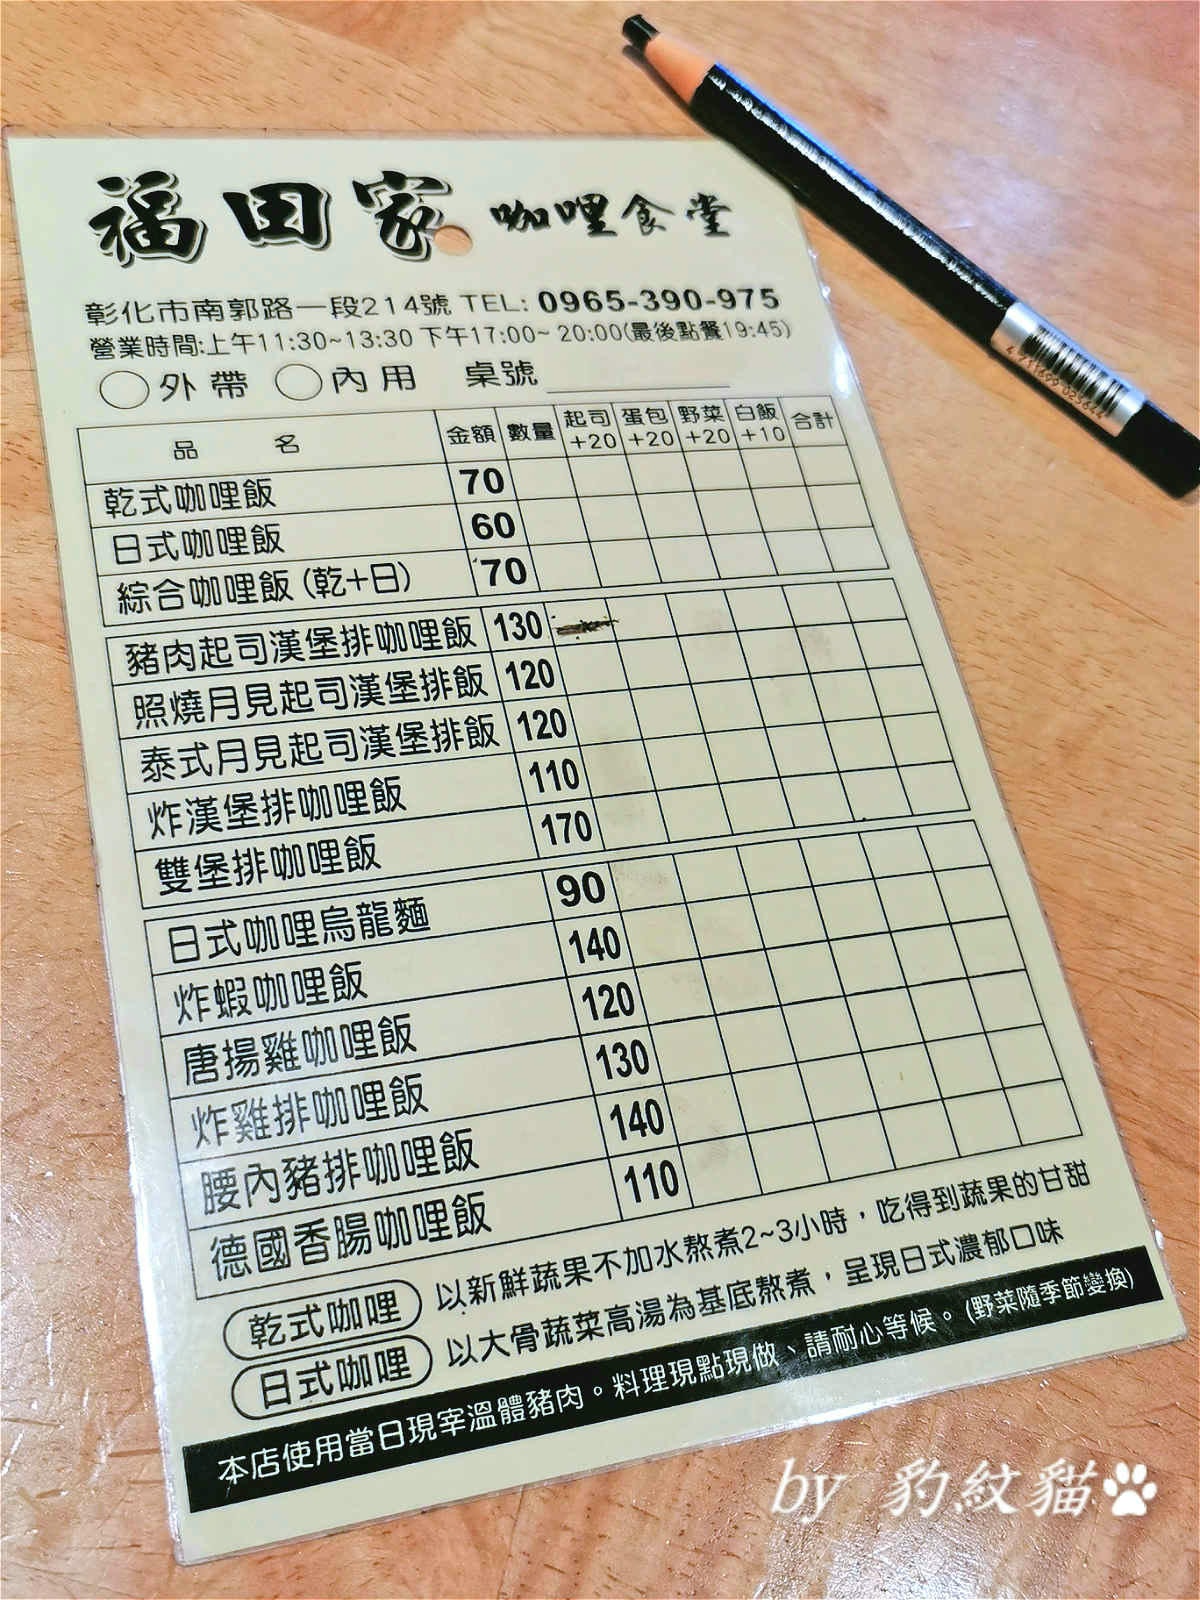 福田家 咖哩食堂
彰化市南郭路一段214號 TEL: 0965-390-975
營業時間:上午11:30~13:30 下午17:00~20:00(最後點餐19:45)
外帶 內用 桌號
品名 金額 數量 起司+20 蛋包+20 野菜+20 白飯+10 合計
乾式咖哩飯 70
日式咖哩飯 60
綜合咖哩飯(乾+日) 70
豬肉起司漢堡排咖哩飯 130
照燒月見起司漢堡排飯 120
泰式月見起司漢堡排飯 120
炸漢堡排咖哩飯 110
雙堡排咖哩飯 170
日式咖哩烏龍麵 90
炸蝦咖哩飯 140
唐揚雞咖哩飯 120
炸雞排咖哩飯 130
腰內豬排咖哩飯 140
德國香腸咖哩飯 110
乾式咖哩 以新鮮蔬果不加水熬煮2~3小時，吃得到蔬果的甘甜
日式咖哩 以大骨蔬菜高湯為基底熬煮，呈現日式濃郁口味
本店使用當日現宰溫體豬肉。料理現點現做、請耐心等候。(野菜隨季節變換)
4 711699 025644
by 豹紋貓